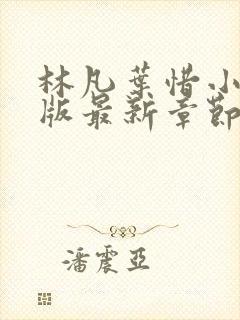 林凡葉惜小
版最新章節
潘震亞